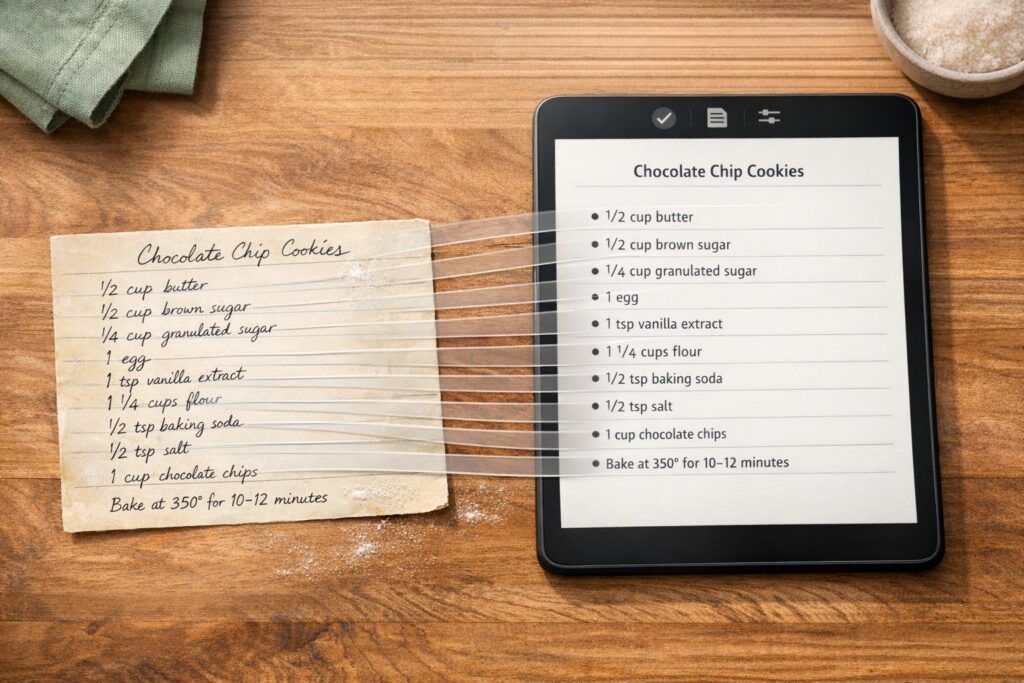 Chocolate Chip Cookies
1/2 cup butter
1/2 cup brown sugar
1/4 cup granulated sugar
1 egg
1 tsp vanilla extract
1 1/4 cups flour
1/2 tsp baking soda
1/2 tsp salt
1 cup chocolate chips
Bake at 350° for 10–12 minutes
Chocolate Chip Cookies
• 1/2 cup butter
• 1/2 cup brown sugar
• 1/4 cup granulated sugar
• 1 egg
• 1 tsp vanilla extract
• 1 1/4 cups flour
• 1/2 tsp baking soda
• 1/2 tsp salt
• 1 cup chocolate chips
• Bake at 350° for 10–12 minutes